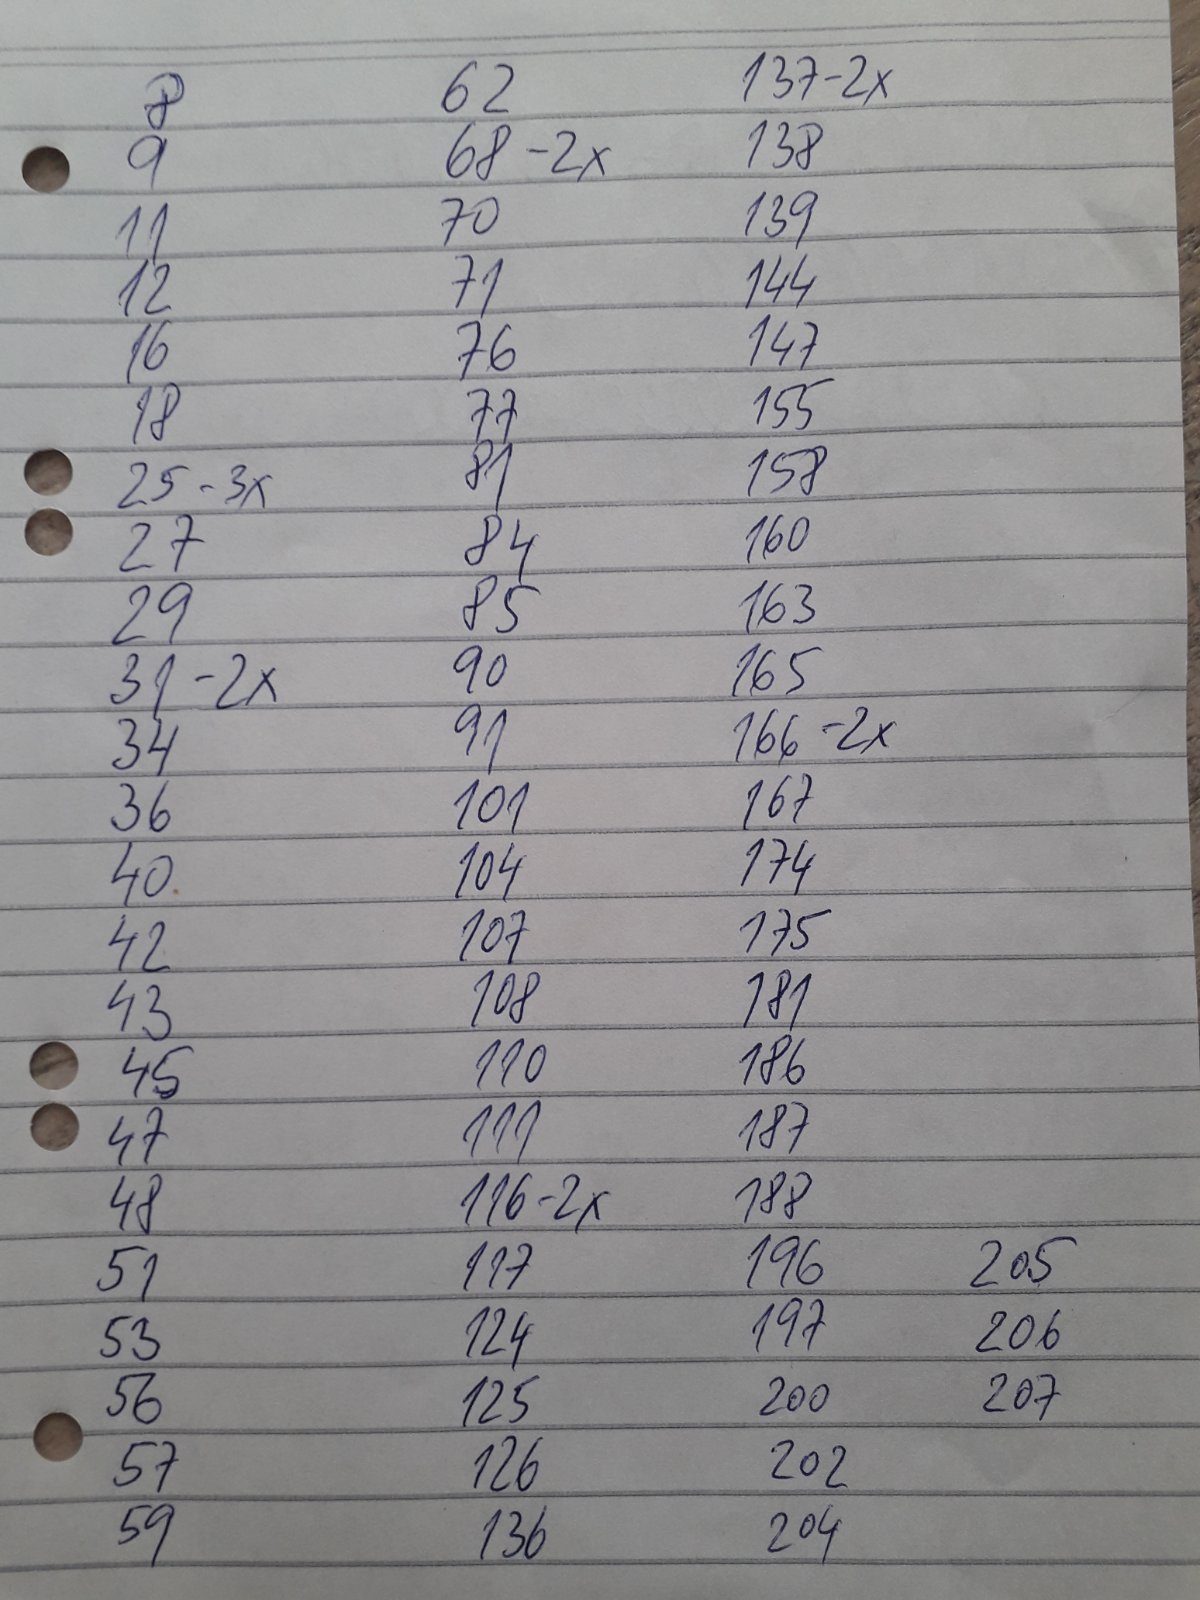 8
9
11
12
16
18
25 - 3x
27
29
31 - 2x
34
36
40
42
43
45
47
48
51
53
56
57
59
62
68 - 2x
70
71
76
77
81
84
85
90
91
101
104
107
108
110
111
116 - 2x
117
124
125
126
136
137 - 2x
138
139
144
147
155
158
160
163
165
166 - 2x
167
174
175
181
186
187
188
196
197
200
202
204
205
206
207